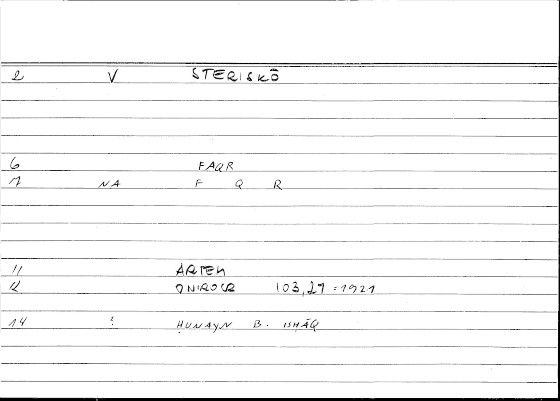 2 V STERISKŌ
6 FAQR
7 NA F Q R
11 ARTEM
12 ONIROCR 103,27 = 1921
14 : ḤUNAYN B. ISHĀQ